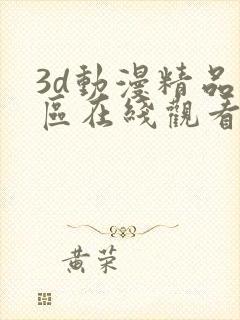 3d動漫精品
區在綫觀看
黄荣